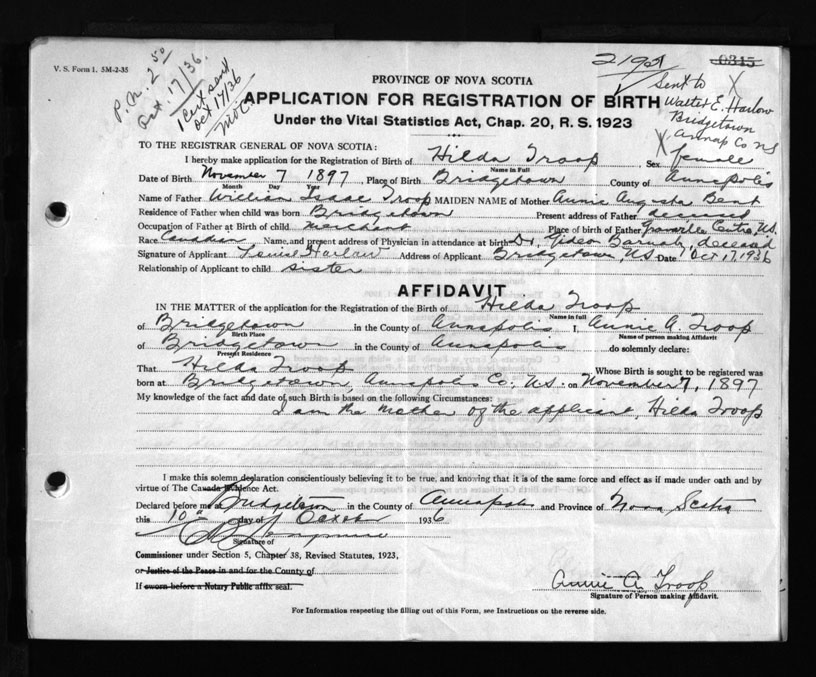 V. S. Form 1. 5M-2-35
P.N. 2 50
Oct. 17/36.
1 Cert sent
Oct 17/36
0345
Sent to X
Walter E. Harlow
Bridgetown
Annap Co NS
PROVINCE OF NOVA SCOTIA
APPLICATION FOR REGISTRATION OF BIRTH
Under the Vital Statistics Act, Chap. 20, R. S. 1923
TO THE REGISTRAR GENERAL OF NOVA SCOTIA:
I hereby make application for the Registration of Birth of Hilda Troop Sex female
Name in Full
Date of Birth November 7 1897, Place of Birth Bridgetown County of Annapolis
Month Day Year
Name of Father William Isaac Troop MAIDEN NAME of Mother Annie Augusta Bent
Residence of Father when child was born Bridgetown Present address of Father deceased
Occupation of Father at Birth of child merchant Place of birth of Father Granville Centre, N.S.
Race Canadian Name, and present address of Physician in attendance at birth Dr. Gideon Barnaby, deceased
Signature of Applicant Louise Harlow Address of Applicant Bridgetown, N.S. Date Oct 17, 1936
Relationship of Applicant to child sister
AFFIDAVIT
IN THE MATTER of the application for the Registration of the Birth of Hilda Troop
Name in full
of Bridgetown in the County of Annapolis I, Annie A. Troop
Birth Place Name of person making Affidavit
of Bridgetown in the County of Annapolis do solemnly declare:
Present Residence
That Hilda Troop Whose Birth is sought to be registered was
born at Bridgetown, Annapolis Co., N.S. on November 7, 1897
My knowledge of the fact and date of such Birth is based on the following Circumstances:
I am the mother of the applicant, Hilda Troop
I make this solemn declaration conscientiously believing it to be true, and knowing that it is of the same force and effect as if made under oath and by
virtue of The Canada Evidence Act.
Declared before me at Bridgetown in the County of Annapolis and Province of Nova Scotia
this 10th day of October 1936
Signature of
Commissioner under Section 5, Chapter 38, Revised Statutes, 1923,
or Justice of the Peace in and for the County of
If sworn before a Notary Public affix seal.
Annie A. Troop
Signature of Person making Affidavit.
For Information respecting the filling out of this Form, see Instructions on the reverse side.